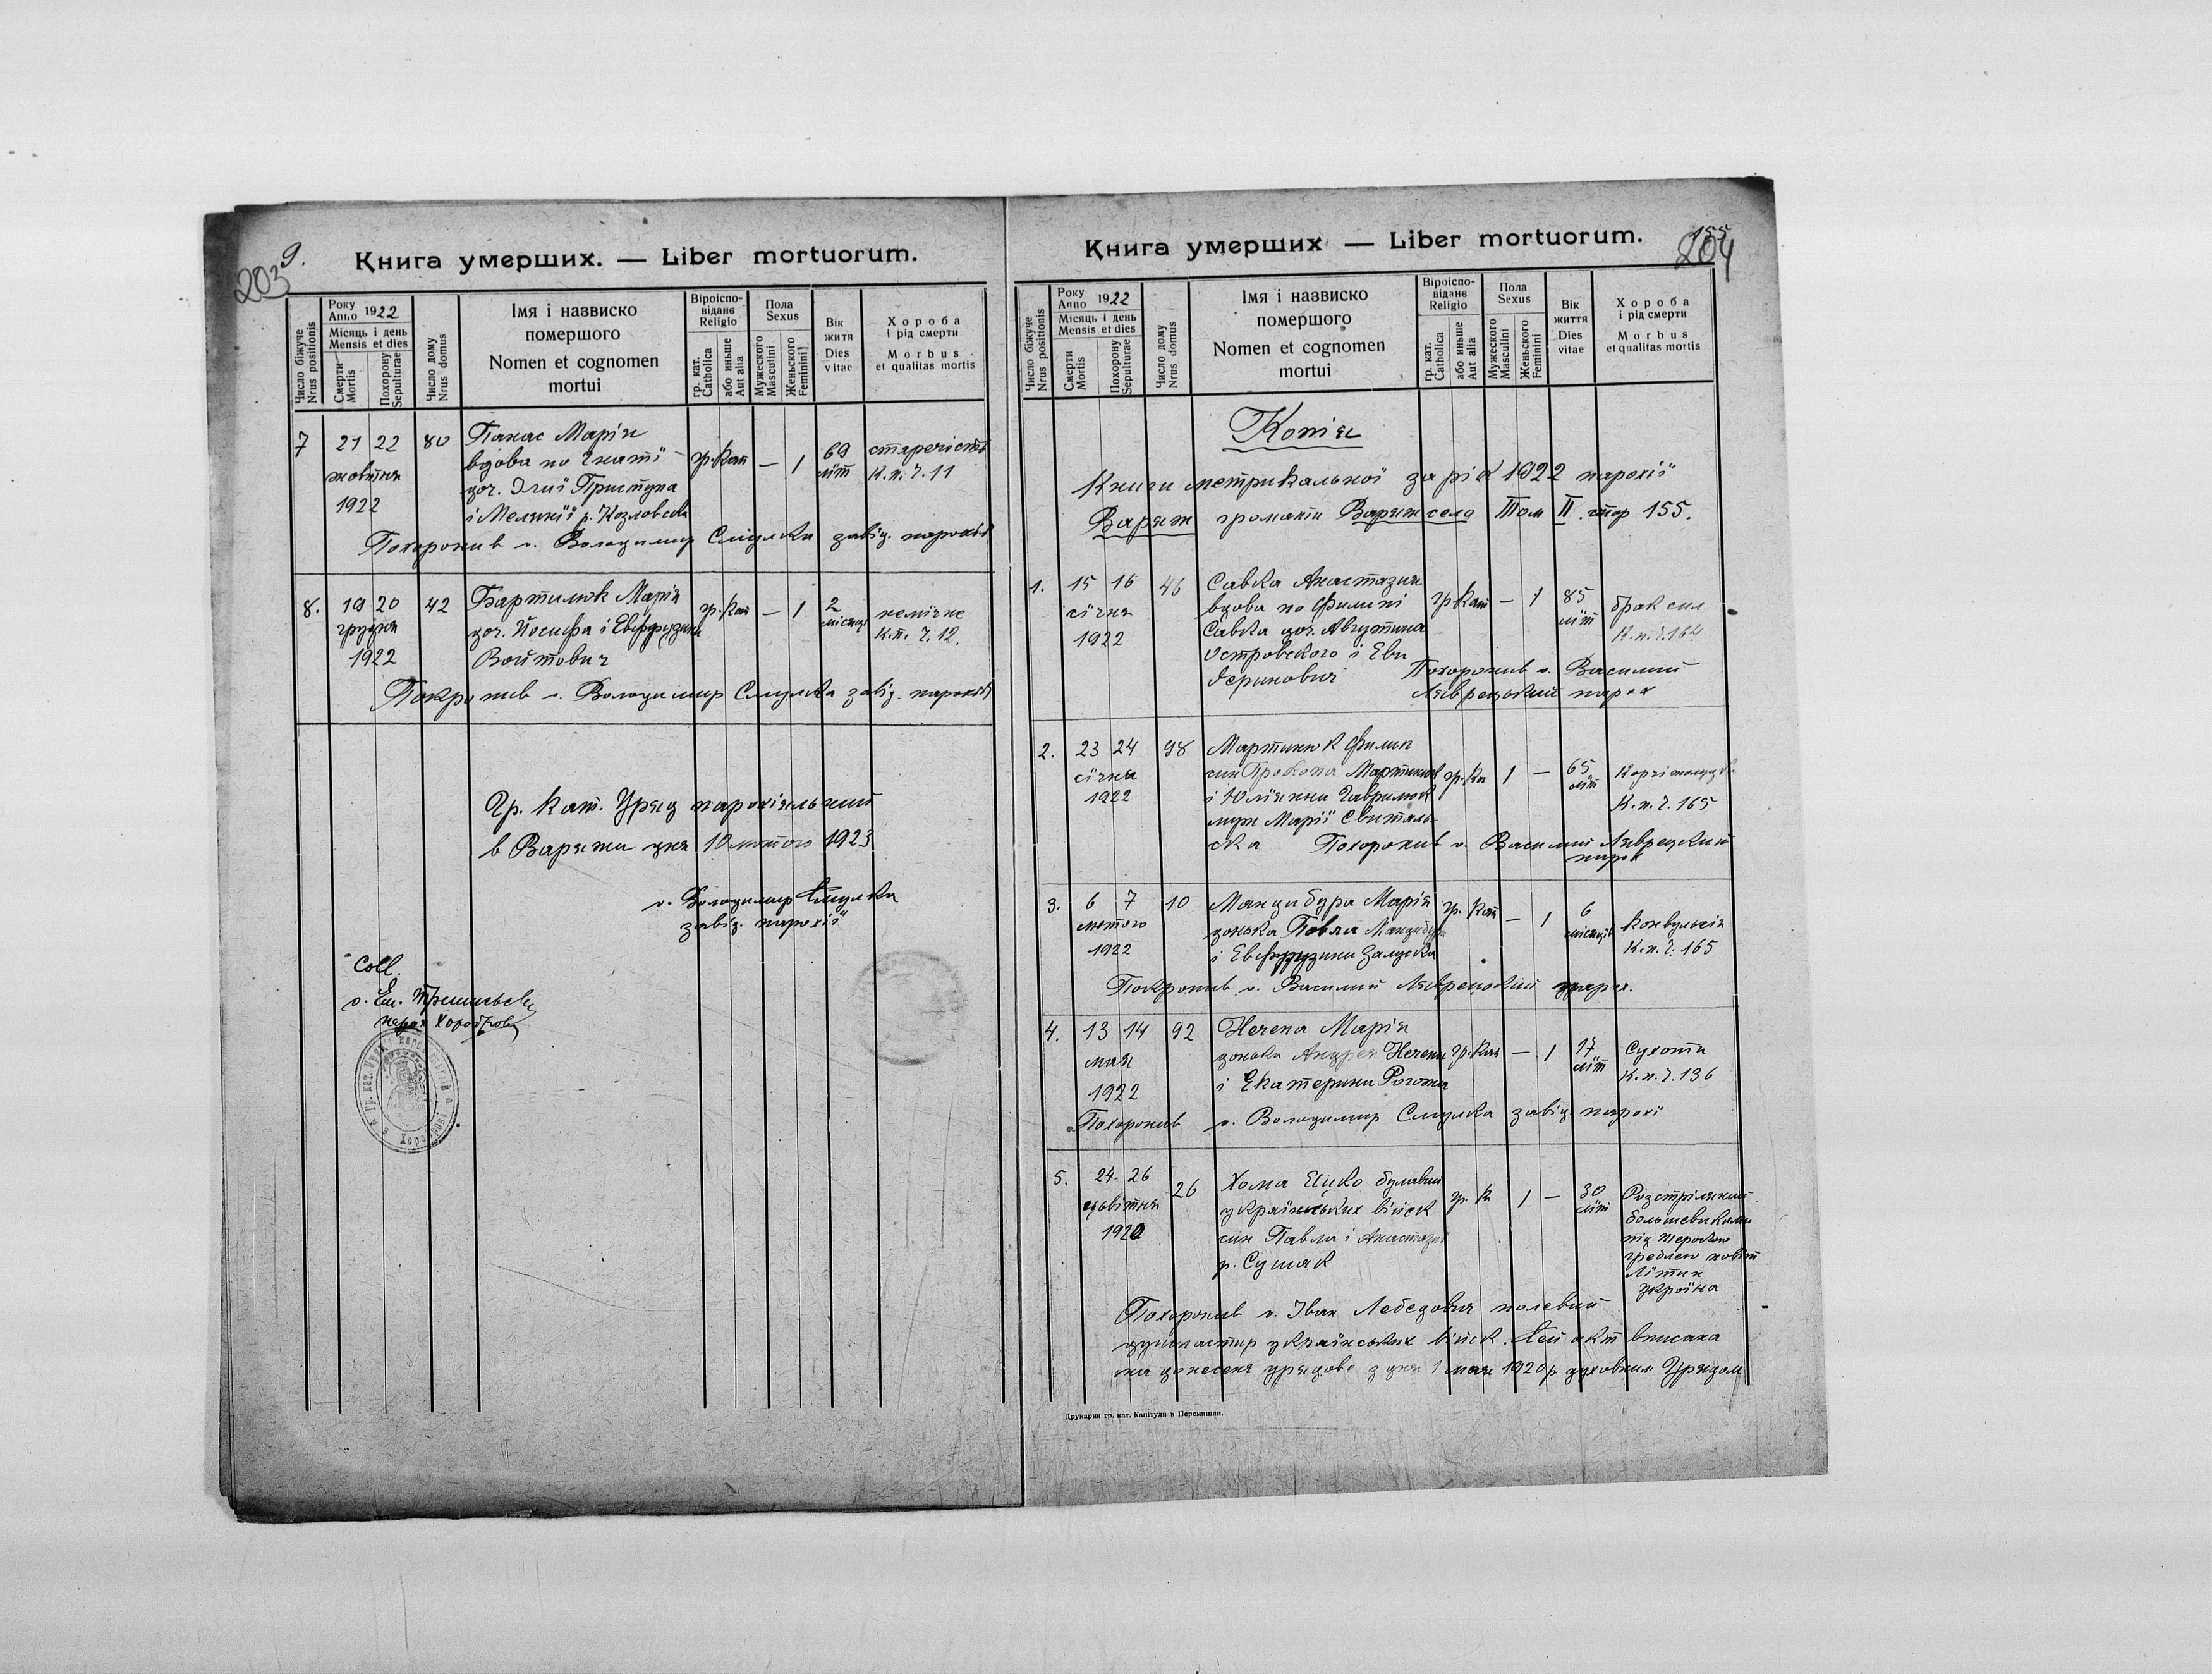 203 9.
Книга умерших. — Liber mortuorum.
Число біжуче
Nrus positionis
Року
Anno 1922
Місяць і день
Mensis et dies
Смерти
Mortis
Похорону
Sepulturae
Число дому
Nrus domus
Імя і назвиско
помершого
Nomen et cognomen
mortui
Віроіспо-
відане
Religio
гр. кат.
Catholica
або иньше
Aut alia
Пола
Sexus
Мужеского
Masculini
Женьского
Feminini
Вік
житя
Dies
vitae
Хороба
і рід смерти
Morbus
et qualitas mortis
7 21 22 80 Панас Марія
жовтня вдова по Гнаті гр. кат — 1 69 літ старечість
1922 доч. Іллії Приступа К. п. ч. 11
і Мелянії р. Козловска
Похоронив о. Володимир Смулка завід. парохії
8. 19 20 42 Бартилюк Марія гр. кат — 1 2 місяці немічне
грудня доч. Йосифа і Евфрузини К. п. ч. 12.
1922 Войтович
Покронив о. Володимир Смулка завід. парохії
Гр. кат. Уряд парохіяльний
в Варяжи дня 10 лютого 1923
о. Володимир Смулка
завід. парохії
Coll.
о. Ем.
парох
Книга умерших — Liber mortuorum.
155
204
Число біжуче
Nrus positionis
Року
Anno 1922
Місяць і день
Mensis et dies
Смерти
Mortis
Похорону
Sepulturae
Число дому
Nrus domus
Імя і назвиско
помершого
Nomen et cognomen
mortui
Віроіспо-
відане
Religio
гр. кат.
Catholica
або иньше
Aut alia
Пола
Sexus
Мужеского
Masculini
Женьского
Feminini
Вік
життя
Dies
vitae
Хороба
і рід смерти
Morbus
et qualitas mortis
Копія
Книги метрикальної за рік 1922 парохії
Варяж громади Варяж село Том II. стор 155.
1. 15 16 46 Савка Анастазия гр кат — 1 85 літ брак сил
січня вдова по Филипі К. п. ч. 164
1922 Савка доч. Августина
Островского і Еви
Похоронив о. Василий
парох
2. 23 24 98 Мартинюк Филип
січня син Прокопа Мартинюк гр. ка 1 — 65 літ
1922 і Юліянни Гаврилюк К. п. ч. 165
муж Марії Свиталь-
ска Похоронив о. Василий Лаврецкий
парох
3. 6 7 10 Манцибура Марія гр. кат — 1 6 місяців конвульсія
лютого донька Павла Манцибура К. п. ч. 165
1922 і Евфрузини Залуска
Покронив о. Василий парох.
4. 13 14 92 Нечепа Марія
мая донька Андрея Нечепи гр. кат — 1 17 літ Сухоти
1922 і Екатерини Рогожа К. п. ч. 136
Похоронив о. Володимир Смулка завід парохі
5. 24. 26 26 Хома Яцко булавний гр. к 1 — 30 літ Розстріляний
цьвітня українських війск большевиками
1920 син Павла і Анастазиї під
р. Сушак греблею повіт
Літин
Україна
Похоронив о. Іван Лебедович полевий
душпастир українських війск. Сей акт вписано
на донесенє урядове з дня 1 мая 1920 р духовним Урядом
Друкарня гр. кат. Капітули в Перемишли.